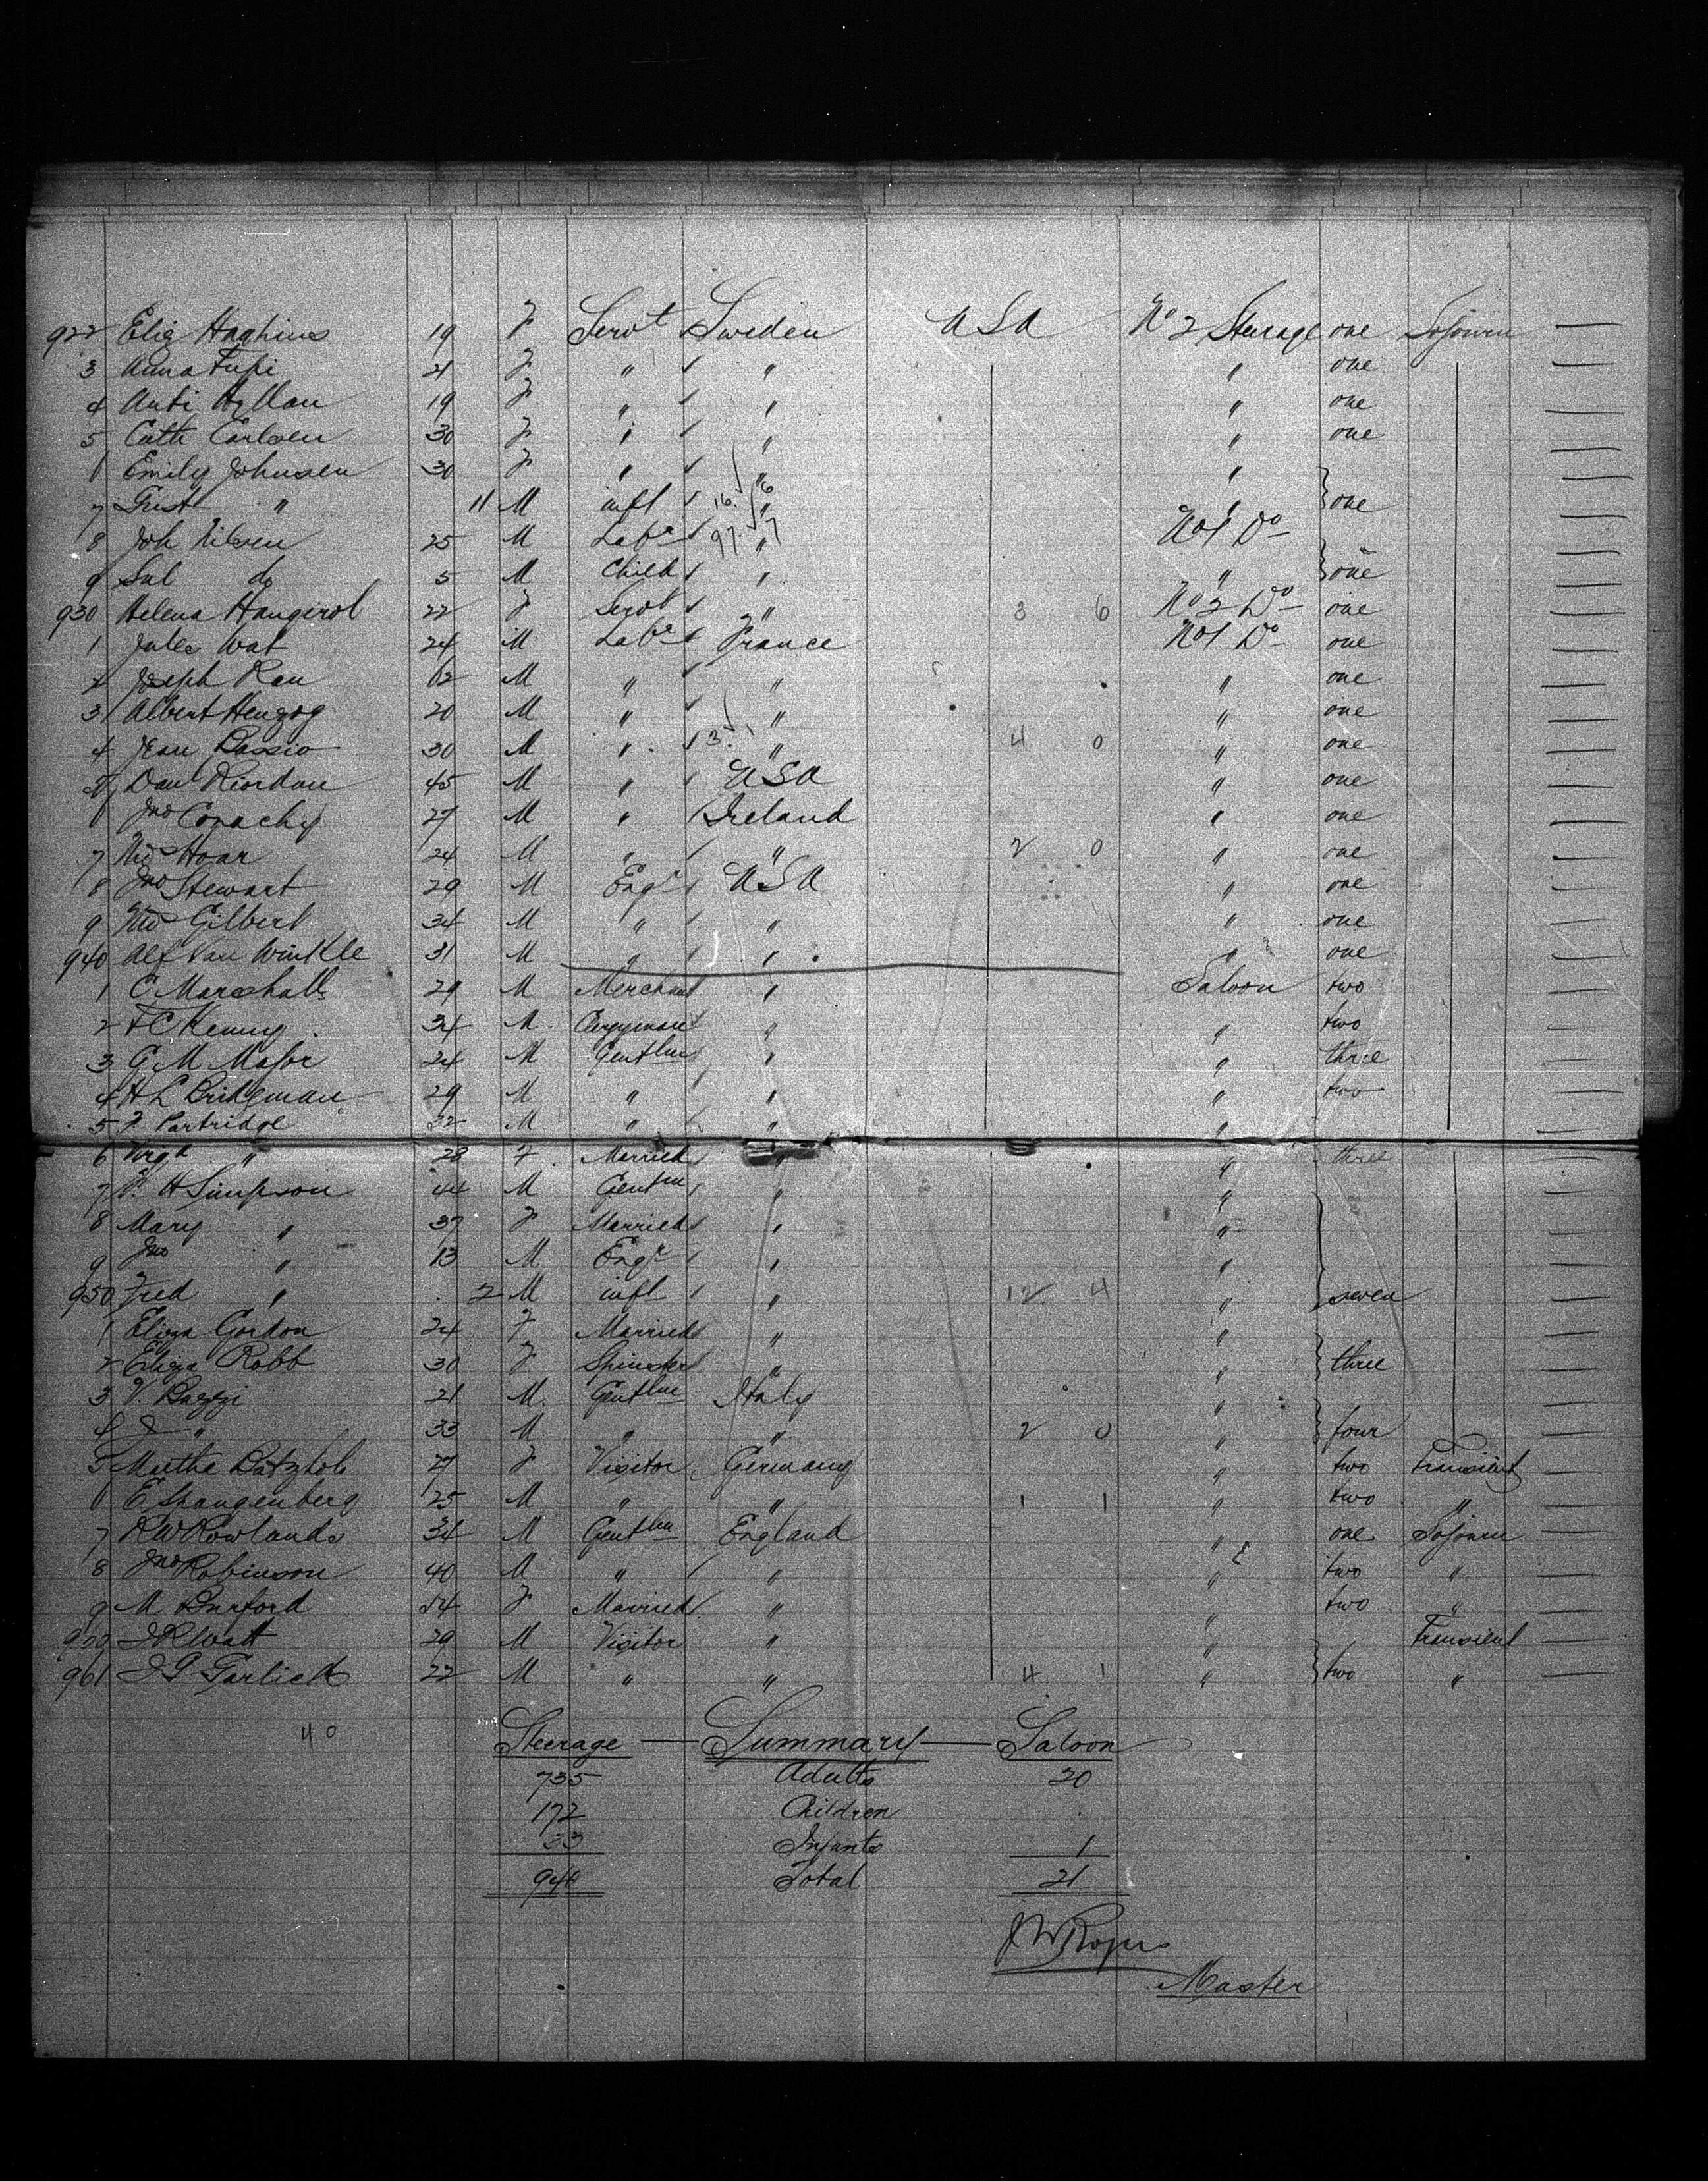 922 Eliz Haghins 19 F Servt Sweden U S A No 2 Steerage one Sojourn
3 Anna Fupi 21 F " " " one
4 Anti Hyllan 19 F " " " one
5 Cath Carlsen 30 F " " " one
6 Emily Johnsen 30 F " " "
7 Gust " 11 M inft 16 6 " " one
8 Joh Nilsen 25 M Labr 97 7 " No 1 Do
9 Sal do 5 M Child " " one
930 Helena 22 F Servt " 3 6 No 2 Do one
1 Jules Wat 24 M Labr France No 1 Do one
2 Joseph Rau 62 M " " " one
3 Albert Henzog 20 M " " " one
4 Jean Bassio 30 M " 3 " 4 0 " one
5 Danl Riordan 45 M " USA " one
6 Jno Conachy 27 M " Ireland " one
7 Hoar 24 M " " 2 0 " one
8 Jno Stewart 29 M Engr USA " one
9 Gilbert 34 M " " " one
940 Alf Van Winkle 31 M " " " one
1 C. Marshall 29 M Merchant " Saloon two
2 F C Kenny 34 M Clergyman " " two
3 G M Major 24 M Gentlm " " three
4 H L Bridgman 29 M " " " two
5 F Partridge 32 M " " "
6 Virga " 28 F Married " " three
7 H Simpson 44 M Gentm " "
8 Mary " 37 F Married " "
9 Jno " 13 M Engr " "
950 Fred " 2 M inft " 12 4 " seven
1 Eliza Gordon 24 F Married " "
2 Eliza Robb 30 F Spinster " " three
3 V. Bazzi 21 M Gentlm Italy "
4 J " 33 M " " 2 0 " four
5 Martha 27 F Visitor Germany " two Transient
6 E Spangenberg 25 M " " 1 1 " two "
7 R W Rowlands 34 M Gentlm England " one Sojourn
8 Jno Robinson 40 M " " " two "
9 M Burford 54 F Married " " two "
960 J R Watt 29 M Visitor " " Transient
961 J G Garlick 22 M " " 4 1 " two "
40
Steerage — Summary — Saloon
735 Adults 20
172 Children
33 Infants 1
940 Total 21
J W Rogers
Master